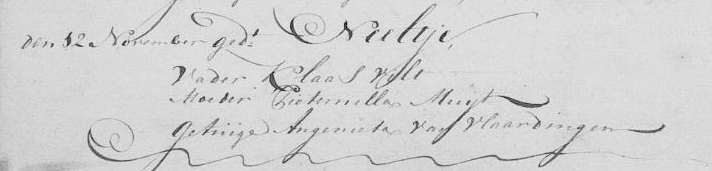 den 12 November ged:t Neeltje,
Vader Klaas Vilt
Moeder Pieternella Muijt
getuige Angenieta van Vlaardingen